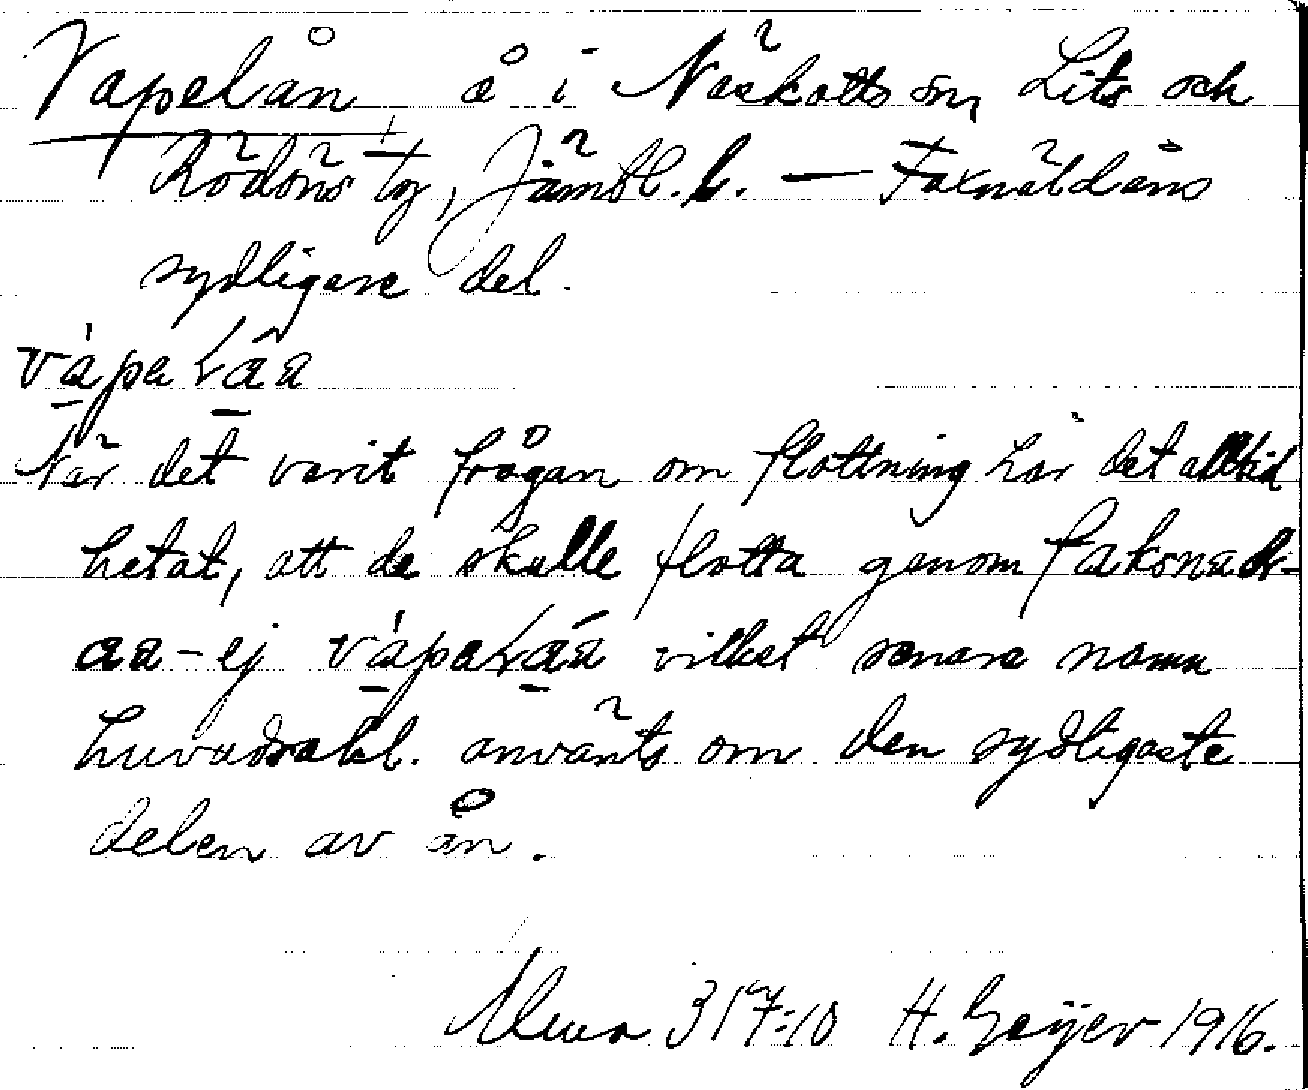 Vapelån, å i Näskotts sn, Lits och
Rödöns tg, Jämtl. l. — Faxnäldåns
sydligare del.
vȧpaLâa
När det varit frågan om flottning har det alltid
hetat, att de skulle flotta genom faksnäld-
aa - ej vȧpaLáa vilket senare namn
huvudsakl. använts om den sydligaste
delen av ån.
317:10 H. Geijer 1916.